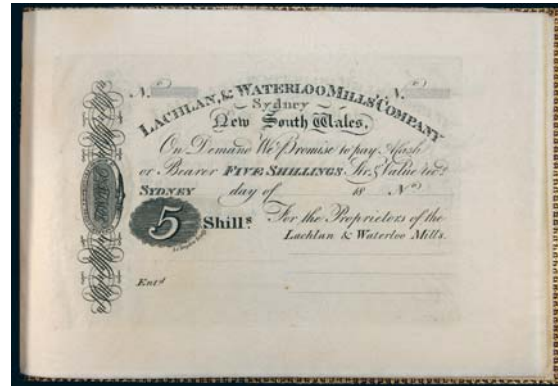 N. N.
LACHLAN, & WATERLOO MILLS' COMPANY
Sydney
New South Wales,
On Demand We Promise to pay
or Bearer FIVE SHILLINGS Str.g Value rec.d
SYDNEY day of 18 N.o
5 Shill.s For the Proprietors of the
Lachlan & Waterloo Mills.
Ent.d